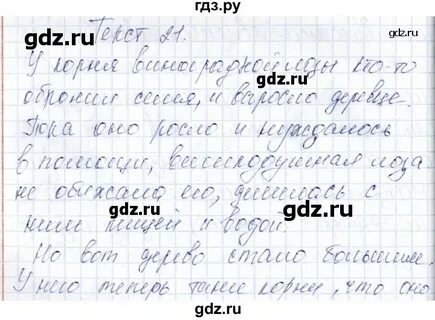 гдз.ру
Текст 21.
У корня виноградной лозы кто-то
обронил семя, и выросло деревце.
Пора оно росло и нуждалось
в помощи, великодушная лоза
не обижала его, делилась с
ним пищей и водой.
Но вот дерево стало большим.
У него теперь такие корни, что оно
gdz.ru
gdz.ru
gdz.ru
gdz.ru
gdz.ru
gdz.ru
gdz.ru
gdz.ru